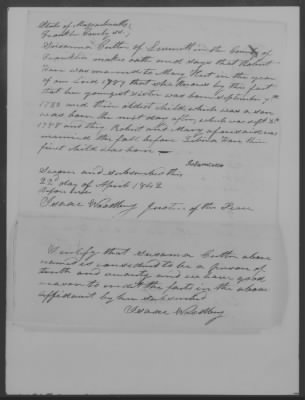 State of Massachusetts
Franklin County ss.
Susanna Cutter of Leverett in the County of
Franklin makes oath and says that Robert
Hare was married to Mary Hunt in the year
of our Lord 1787 that she knows by this fact
that her youngest sister was born September 7th
1788 and their oldest child which was a son
was born the next day after, which was Sept 8th
1788 and they Robert and Mary aforesaid was
married the fall before their
first child was born
Sworn and Subscribed this
22d day of April 1842
Before me
Isaac Woodbury Justice of the Peace
I certify that Susanna Cutter above
named is considered to be a person of
truth and veracity and we have good
reason to credit the facts in the above
affidavit by her subscribed
Isaac Woodbury